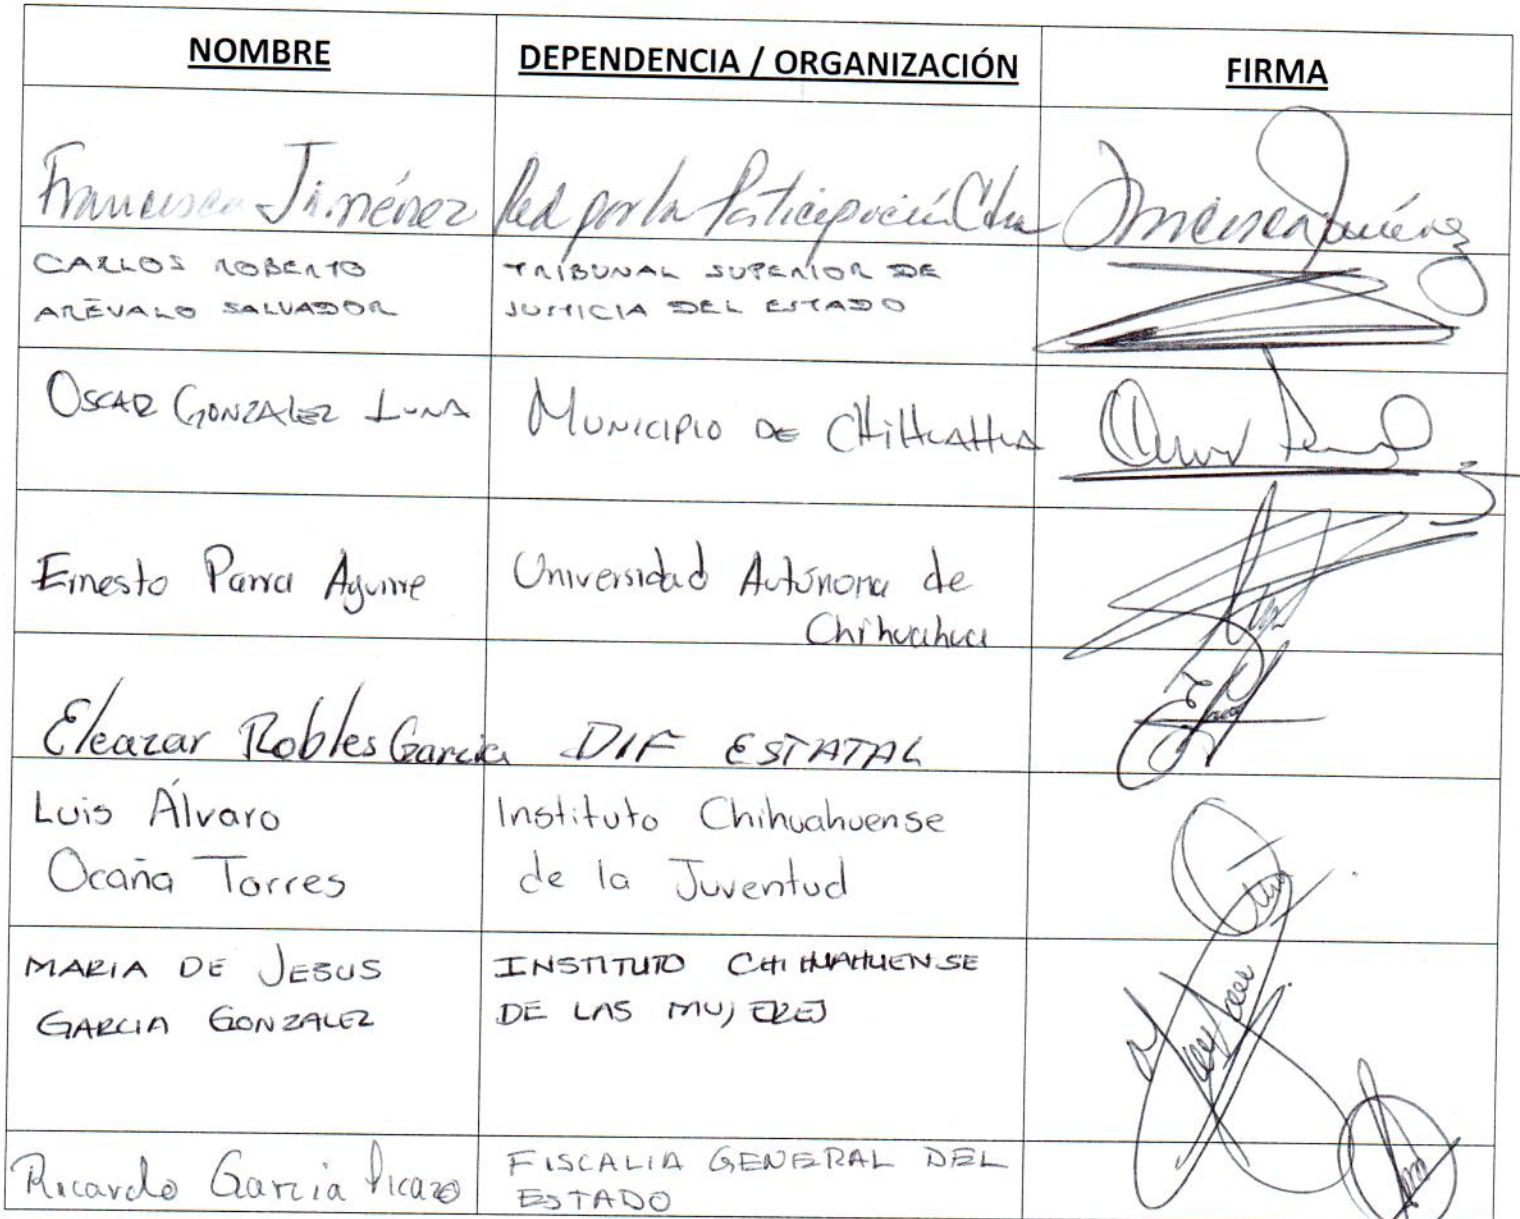 NOMBRE DEPENDENCIA / ORGANIZACIÓN FIRMA
Francisca Jiménez Red por la Participación Cdna
CARLOS ROBERTO TRIBUNAL SUPERIOR DE
ARÉVALO SALVADOR JUSTICIA DEL ESTADO
OSCAR GONZALEZ LUNA MUNICIPIO DE CHIHUAHUA
Ernesto Parra Aguirre Universidad Autónoma de
Chihuahua
Eleazar Robles Garcia DIF ESTATAL
Luis Álvaro Instituto Chihuahuense
Ocaña Torres de la Juventud
MARIA DE JESUS INSTITUTO CHIHUAHUENSE
GARCIA GONZALEZ DE LAS MUJERES
Ricardo Garcia Picazo FISCALIA GENERAL DEL
ESTADO